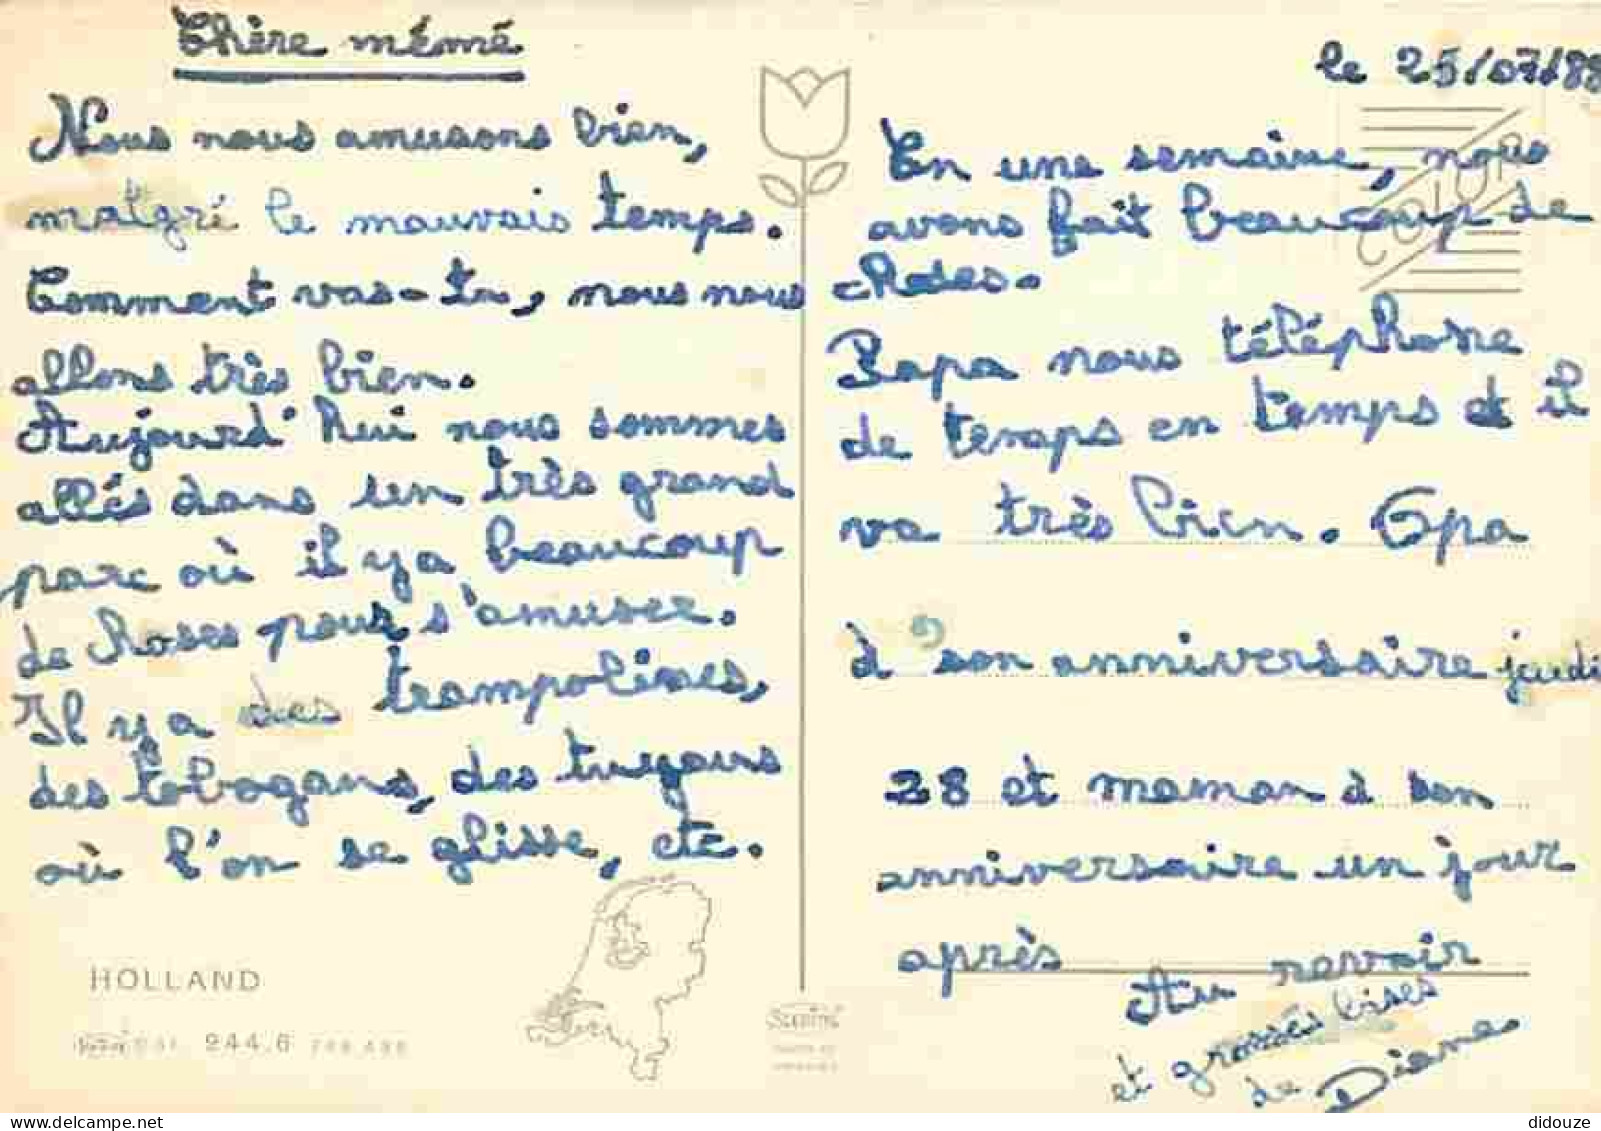 Chère mémé
le 25/07/88
Nous nous amusons bien,
malgré le mauvais temps.
Comment vas-tu, nous nous
allons très bien.
Aujourd'hui nous sommes
allés dans un très grand
parc où il y a beaucoup
de choses pour s'amuser.
Il y a des trampolines,
des tobogans, des tuyaus
où l'on se glisse, etc.
En une semaine, nous
avons fait beaucoup de
choses.
Papa nous téléphone
de temps en temps et il
va très bien. Gpa
à son anniversaire jeudi
28 et maman à son
anniversaire un jour
après
Au revoir
et grosses bises
de Diane
COLOR
HOLLAND
244.6
didouze